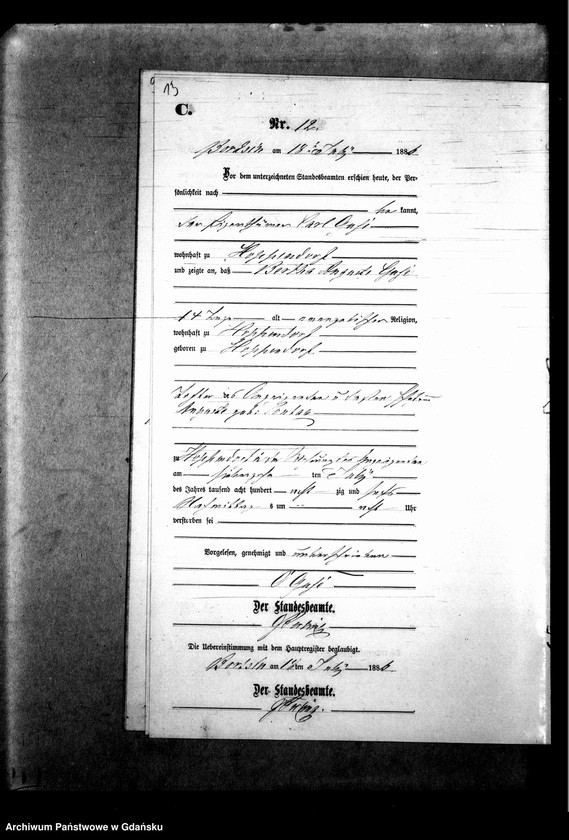 13
C.
Nr. 12.
am 18 ten July 1886
Vor dem unterzeichneten Standesbeamten erschien heute, der Per-
sönlichkeit nach
be kannt,
der Eigenthümer Carl
wohnhaft zu Hoppendorf
und zeigte an, daß Bertha Auguste
14 Tage alt evangelischer Religion,
wohnhaft zu Hoppendorf
geboren zu Hoppendorf
Tochter des Anzeigenden u dessen Ehefrau
Auguste geb:
zu Hoppendorf in der Wohnung des Anzeigenden
am ten July
des Jahres tausend acht hundert acht zig und sechs
Nachmittags um acht Uhr
verstorben sei
Vorgelesen, genehmigt und unterschrieben
Der Standesbeamte.
Die Uebereinstimmung mit dem Hauptregister beglaubigt.
am 18 ten July 1886
Der Standesbeamte.
Archiwum Państwowe w Gdańsku